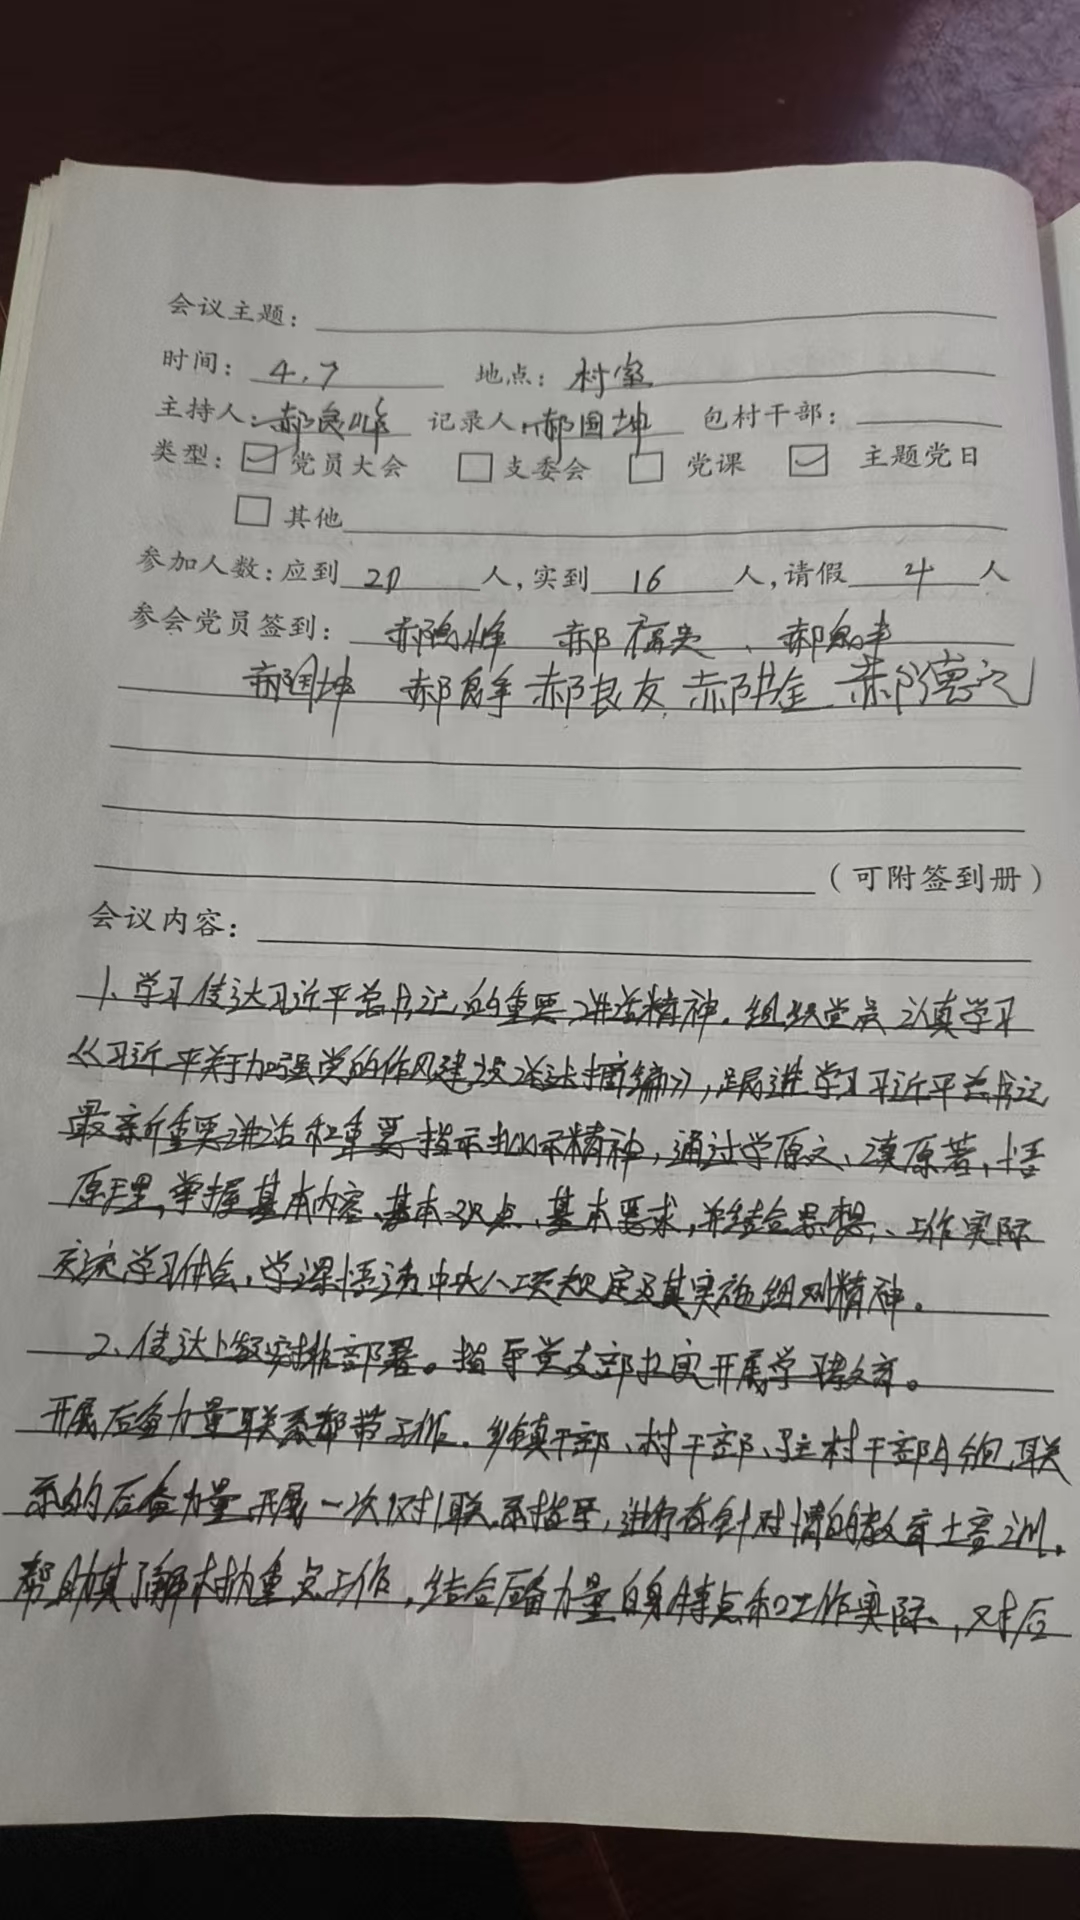 会议主题：
时间：4.7 地点：村室
主持人：郝良峰 记录人：郝国坤 包村干部：
类型：党员大会 支委会 党课 主题党日
其他
参加人数：应到 20 人，实到 16 人，请假 4 人
参会党员签到：郝良峰 郝
郝国坤 郝 郝良友 郝 郝德
（可附签到册）
会议内容：
1、学习传达习近平总书记的重要讲话精神。组织党员认真学习
《习近平关于加强党的作风建设论述摘编》，跟进学习习近平总书记
最新重要讲话和重要指示批示精神，通过学原文、读原著、悟
原理，掌握基本内容、基本观点、基本要求，并结合思想、工作实际
交流学习体会，学深悟透中央八项规定及其实施细则精神。
2、传达上级安排部署。指导党支部扎实开展学习教育。
开展后备力量联系帮带工作。乡镇干部、村干部、驻村干部与分包、联
系的后备力量开展一次1对1联系指导，进行有针对情的教育培训。
帮助其了解村内重点工作，结合后备力量自身特点和工作实际，对后